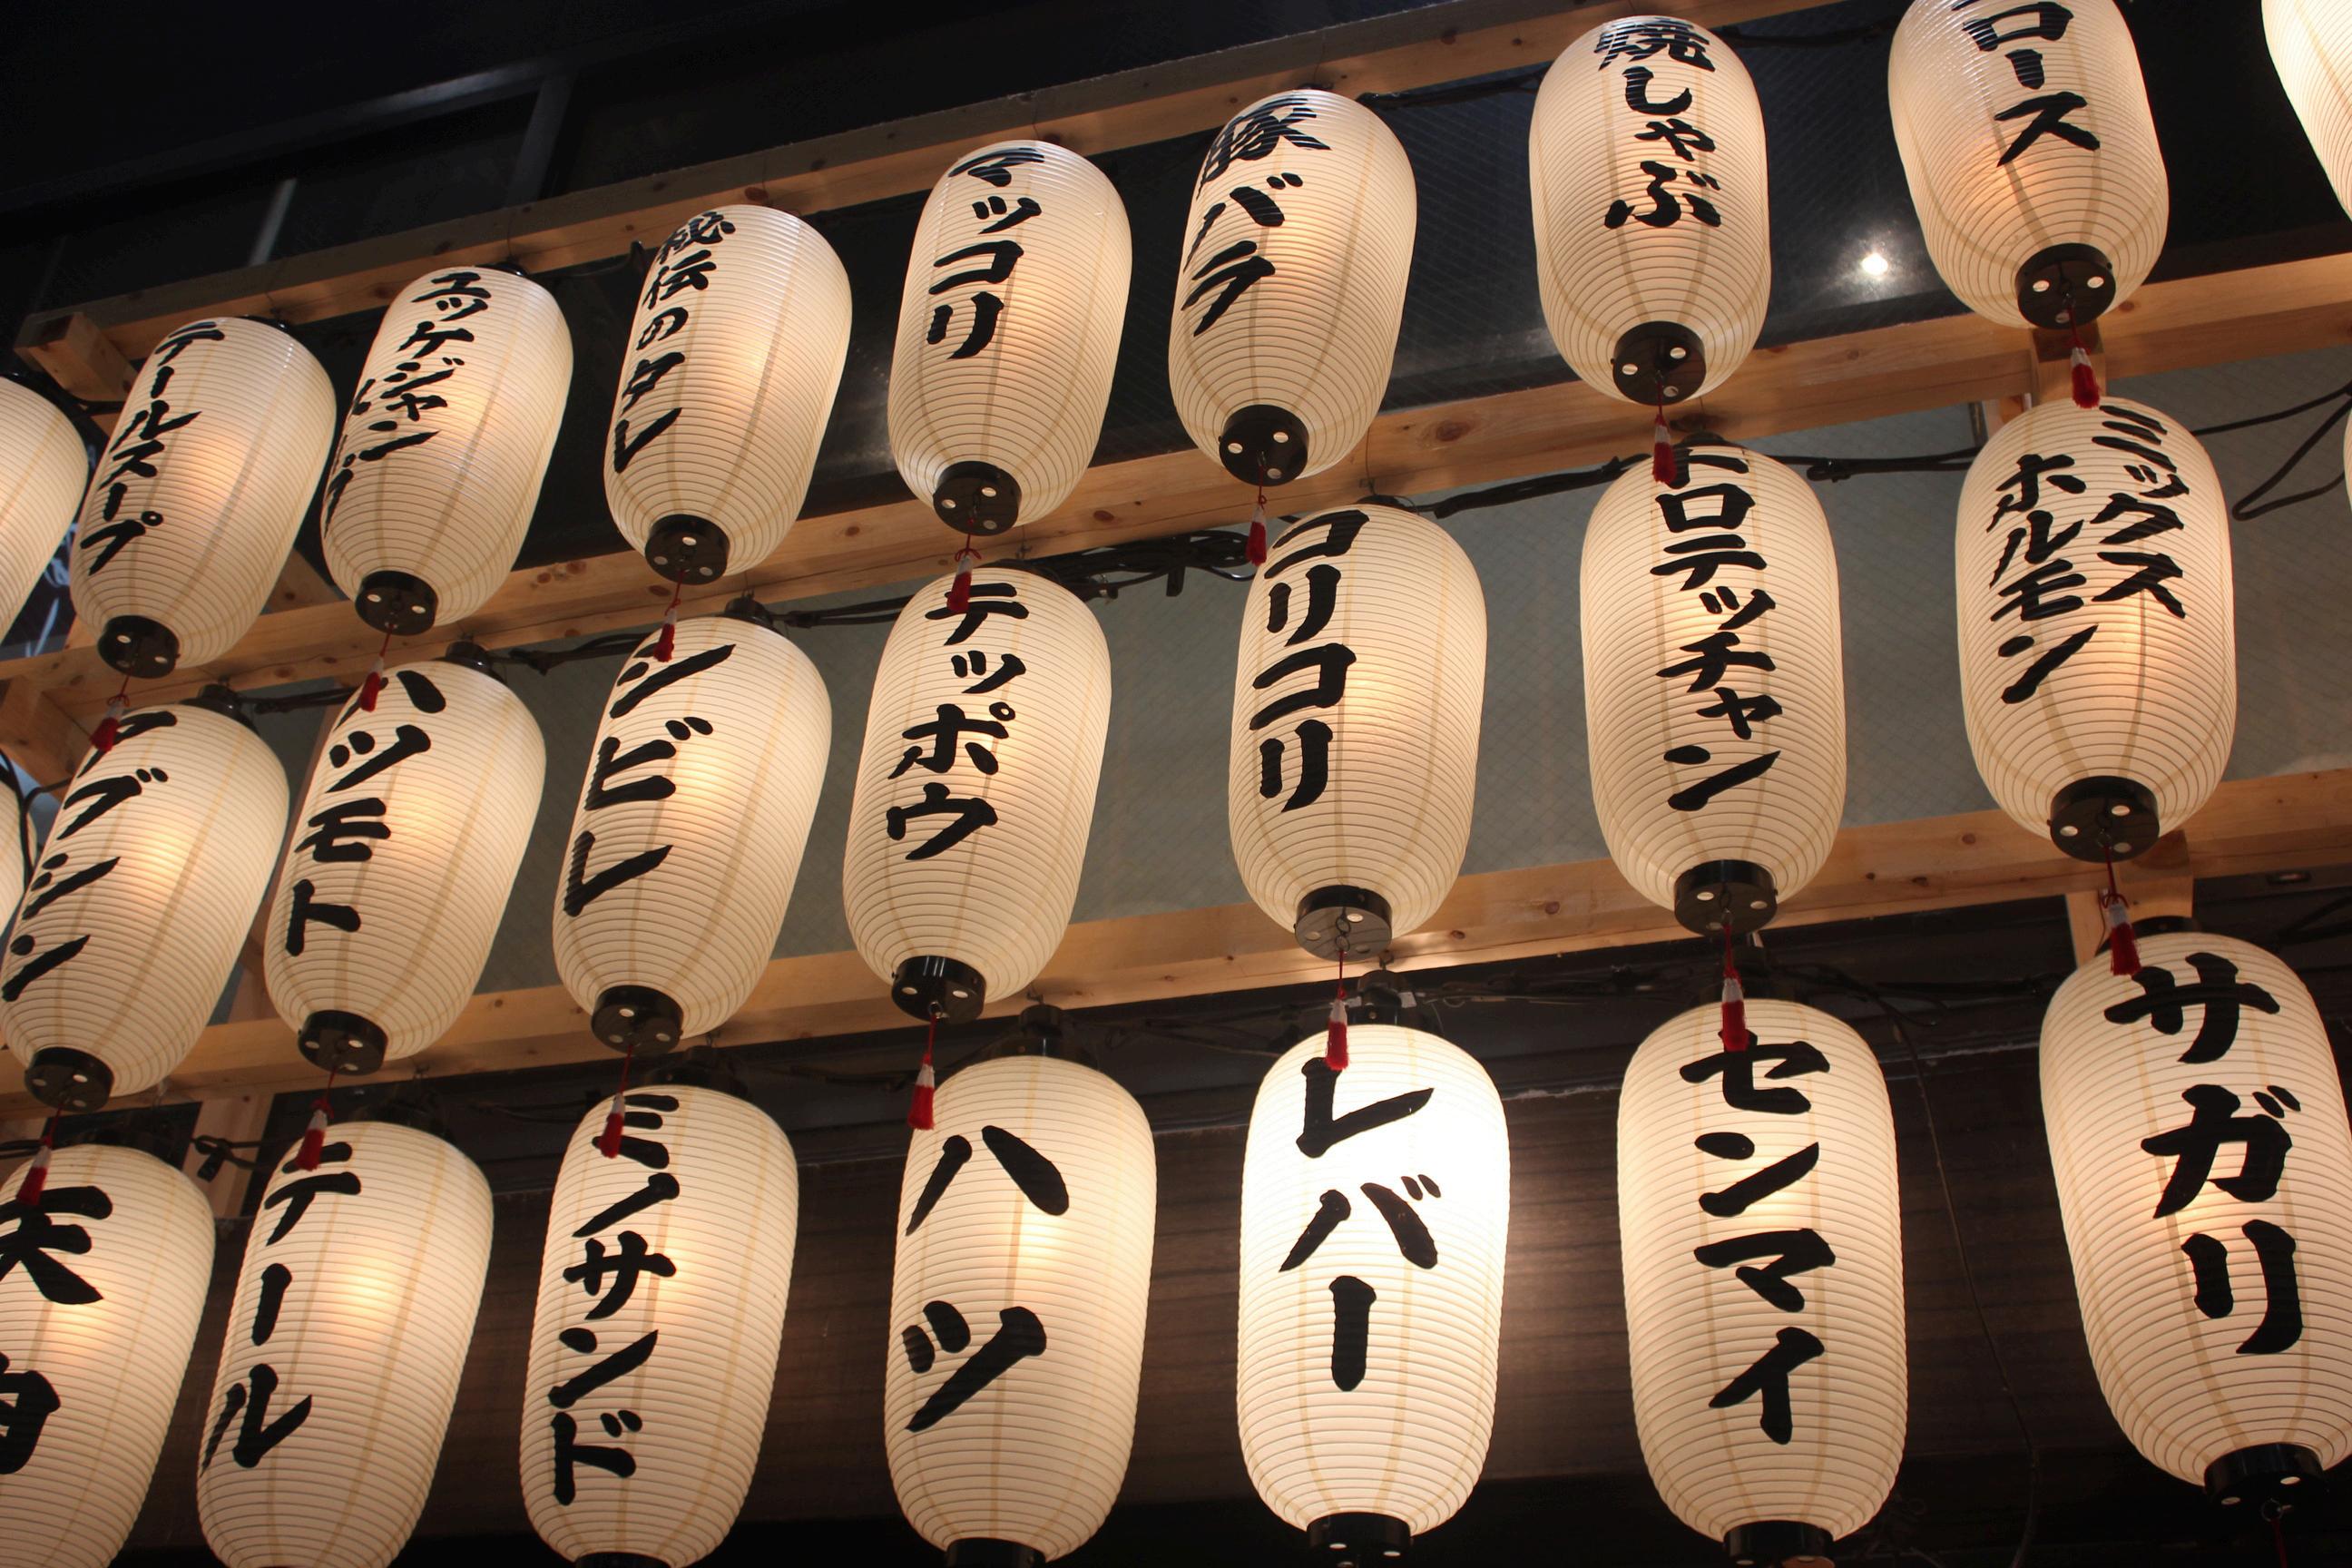 テールスープ
ユッケジャン
秘伝のタレ
マッコリ
豚バラ
焼しゃぶ
ロース
ハツモト
シビレ
テッポウ
コリコリ
トロテッチャン
ミックス
ホルモン
テール
ミノサンド
ハツ
レバー
センマイ
サガリ